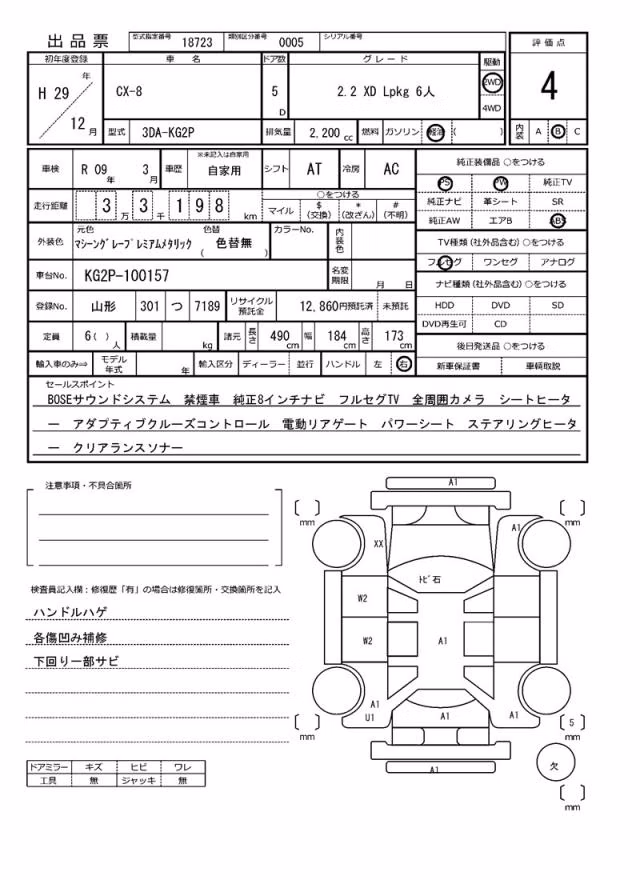 出品票 型式指定番号 18723 類別区分番号 0005 シリアル番号
評価点
4
内装 A B C
初年度登録 車名 ドア数 グレード 駆動
H 29 年 12 月 CX-8 5 D 2.2 XD Lpkg 6人 2WD 4WD
型式 3DA-KG2P 排気量 2,200 cc 燃料 ガソリン 軽油 ( )
車検 R 09 年 3 月 車歴 ※未記入は自家用 自家用 シフト AT 冷房 AC
走行距離 3 万 3 千 1 9 8 km
○をつける
マイル $ (交換) * (改ざん) # (不明)
外装色 元色 マシーングレープレミアムメタリック 色替 ( 色替無 ) カラーNo. 内装色
車台No. KG2P-100157 名変期限 月 日
登録No. 山形 301 つ 7189 リサイクル預託金 12,860円預託済 未預託
定員 6( ) 人 積載量 kg 諸元 長さ 490 cm 幅 184 cm 高さ 173 cm
輸入車のみ⇒ モデル年式 年 輸入区分 ディーラー 並行 ハンドル 左 右
純正装備品 ○をつける
PS PW 純正TV
純正ナビ 革シート SR
純正AW エアB ABS
TV種類 (社外品含む) ○をつける
フルセグ ワンセグ アナログ
ナビ種類 (社外品含む) ○をつける
HDD DVD SD
DVD再生可 CD
後日発送品 ○をつける
新車保証書 車輌取説
セールスポイント
BOSEサウンドシステム 禁煙車 純正8インチナビ フルセグTV 全周囲カメラ シートヒータ
ー アダプティブクルーズコントロール 電動リアゲート パワーシート ステアリングヒータ
ー クリアランスソナー
注意事項・不具合箇所
検査員記入欄:修復歴「有」の場合は修復箇所・交換箇所を記入
ハンドルハゲ
各傷凹み補修
下回り一部サビ
ドアミラー キズ ヒビ ワレ
工具 無 ジャッキ 無
A1
[ ] mm
[ ] mm
A1
XX
トビ石
W2
W2
A1
A1
U1
A1
A1
[ ] mm
[ 5 ] mm
A1
欠
[ ] mm